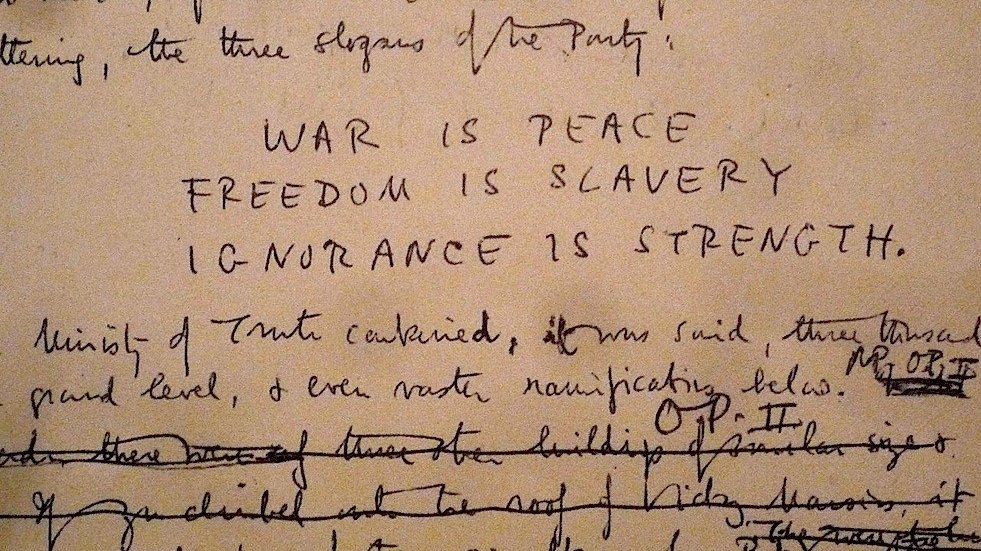 ttering, the three slogans of the Party:
WAR IS PEACE
FREEDOM IS SLAVERY
IGNORANCE IS STRENGTH.
Ministry of Truth contained, it was said, three thousand
ground level, & even vaster ramifications below.
O.P. II
there were three other buildings of similar size &
If you climbed onto the roof of Victory Mansions, it